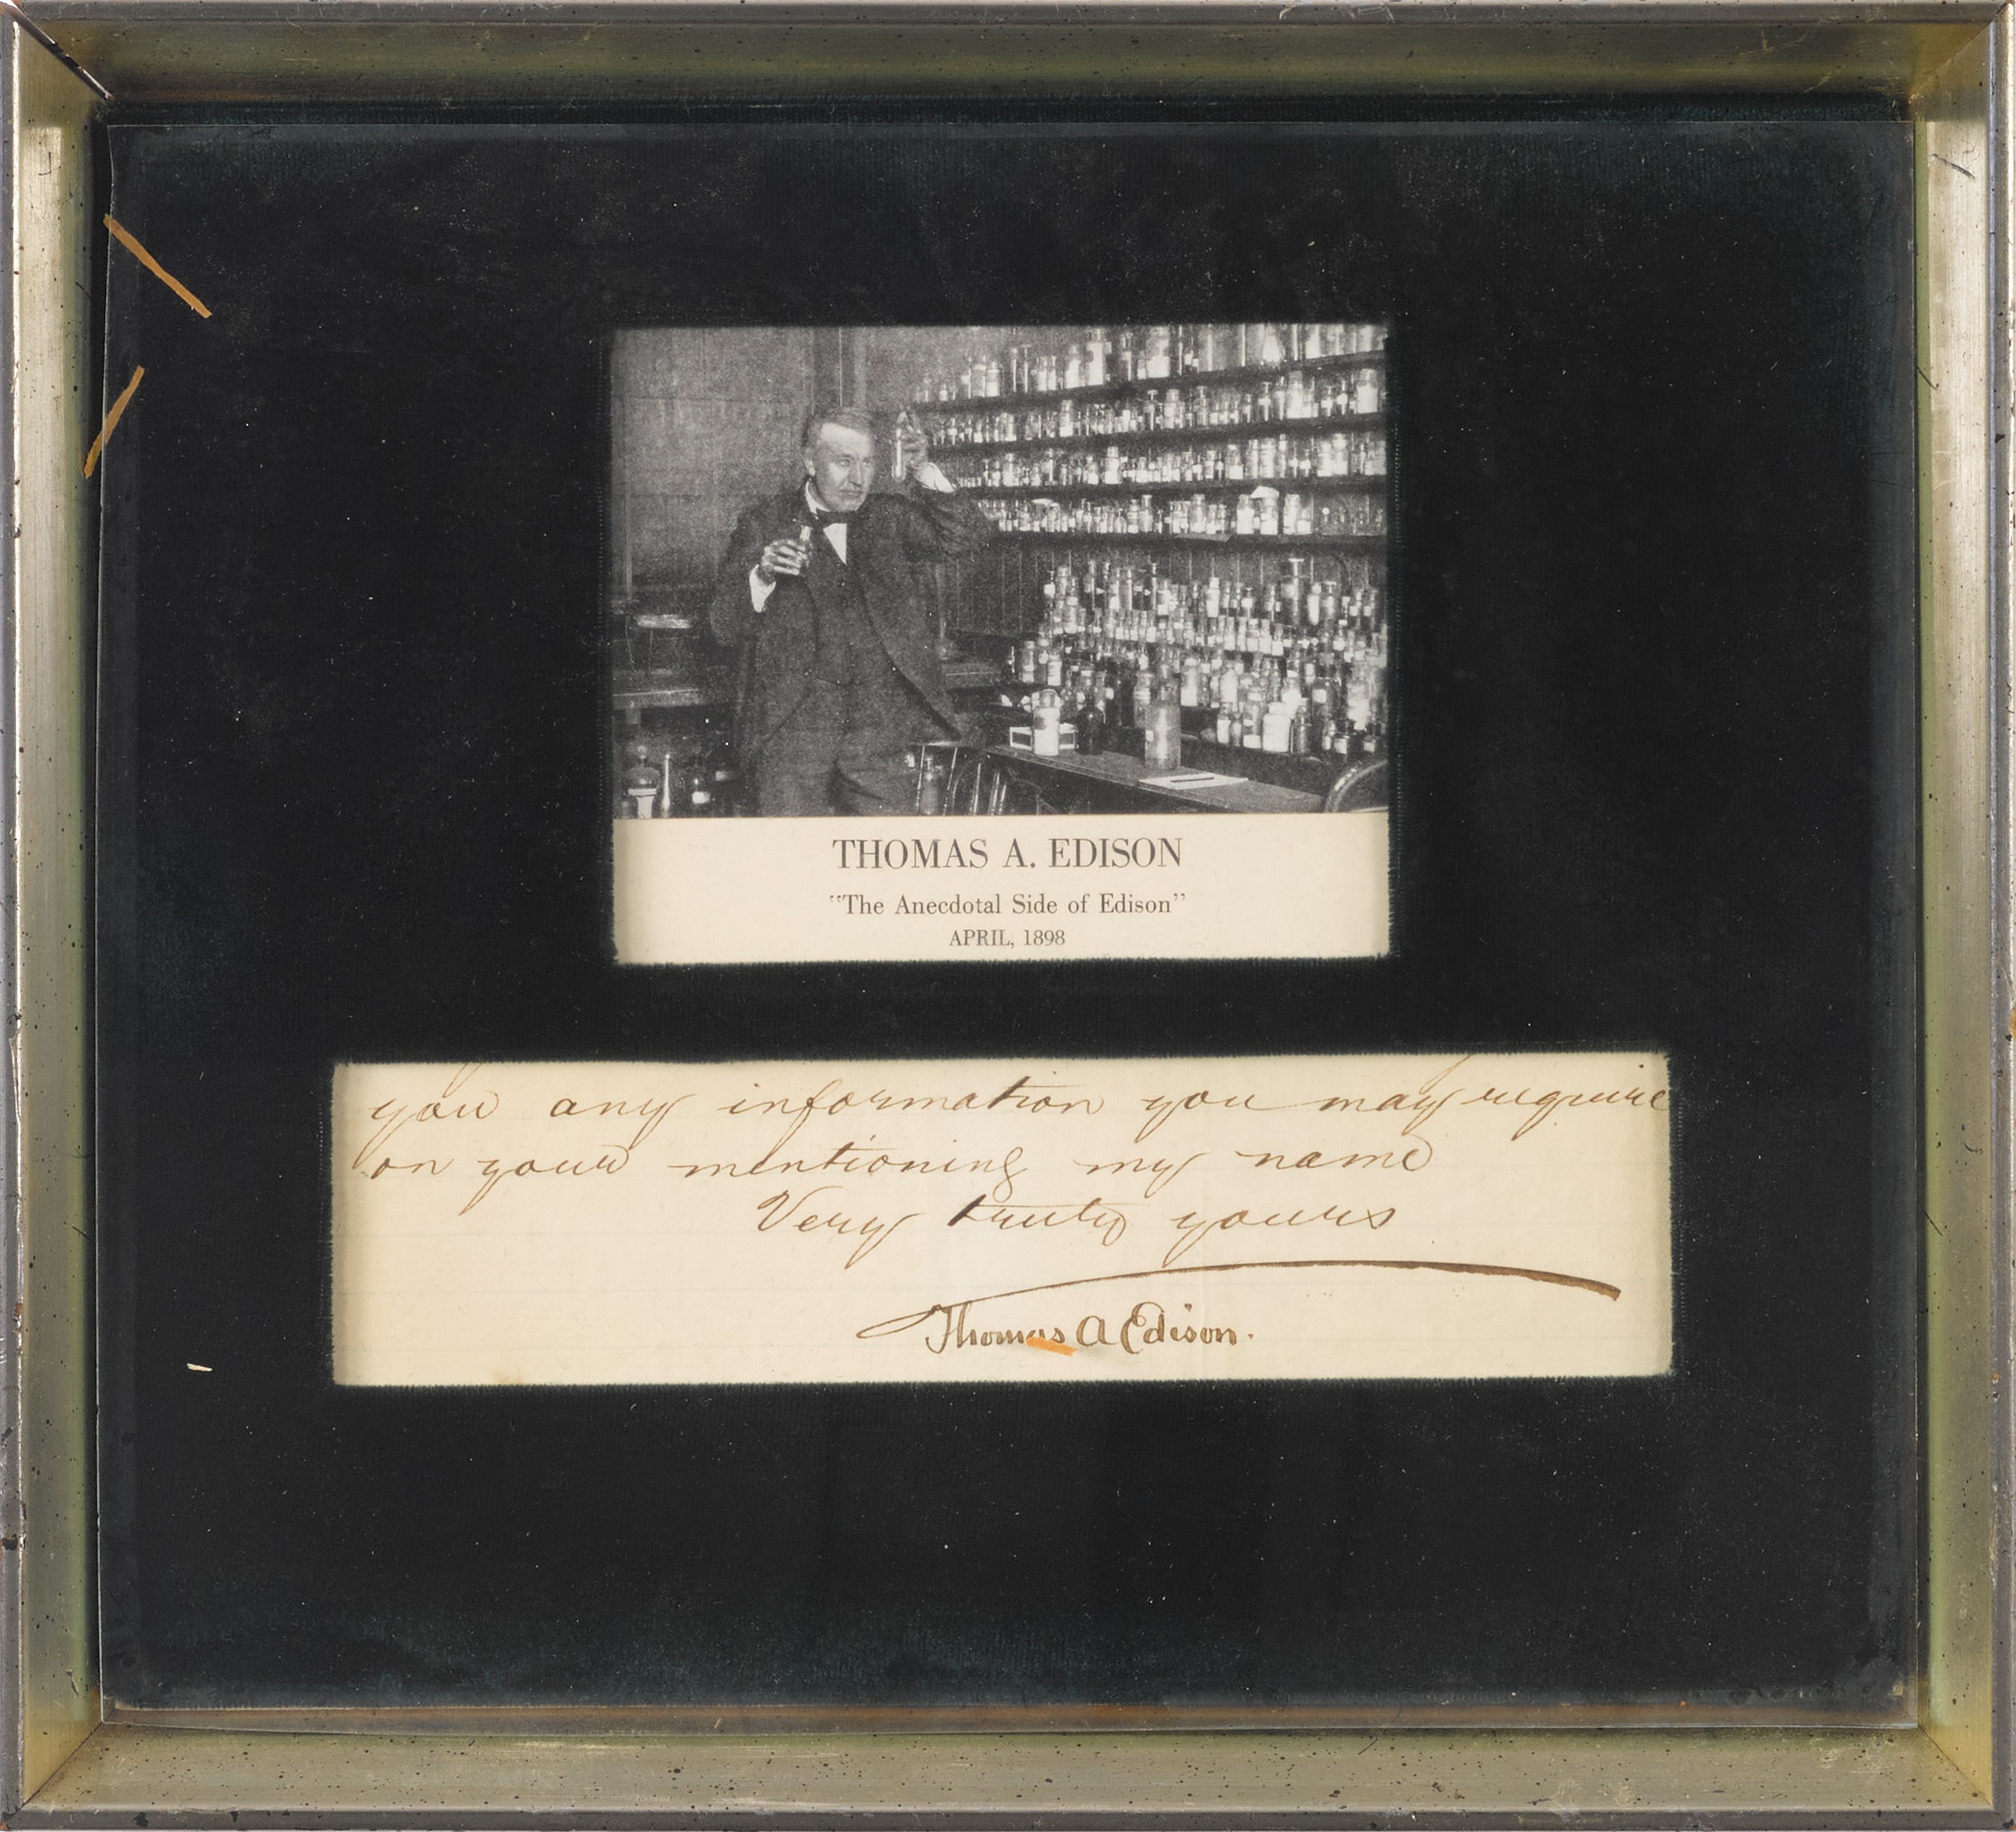 THOMAS A. EDISON
“The Anecdotal Side of Edison”
APRIL, 1898
you any information you may require
on your mentioning my name
Very truly yours
Thomas A Edison.